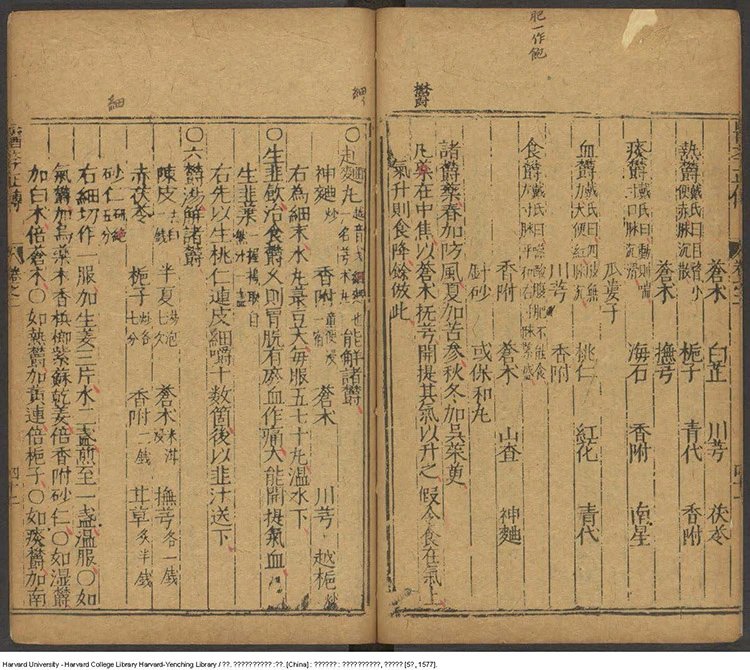 肥一作飽
鬱
蒼术 白芷 川芎 茯苓
熱鬱 戴氏曰目瞀小便赤脉沉散 梔子 青代 香附
蒼术 撫芎
痰鬱 戴氏曰動則喘寸口脉沉滑 海石 香附 南星
瓜蔞子
血鬱 戴氏曰四肢無力大便紅脉 桃仁 紅花 青代
川芎 香附
食鬱 戴氏曰噯酸腹不能食 香附 蒼术 山查 神麯
針砂 或保和丸
諸鬱藥春加防風夏加苦參秋冬加吳茱萸
凡藥在中焦以蒼术撫芎開提其氣以升之假令食在氣上
氣升則食降餘倣此
細
〇越麯丸 一名芎术丸 能解諸鬱
神麯炒 香附童便浸一宿 蒼术 川芎 越梔炒
右為細末水丸菉豆大每服五七十丸温水下
〇生韭飲治食鬱久則胃脘有瘀血作痛大能開提氣血
生韭葉 一握搗取自然汁一盞
右先以生桃仁連皮細嚼十數箇後以韭汁送下
〇六鬱湯解諸鬱
細
陳皮去白一錢 半夏湯泡七次 蒼术米泔浸 撫芎各一錢
赤茯苓 梔子炒各七分 香附二錢 甘草炙半錢
砂仁研細五分
右細切作一服加生姜三片水二盞煎至一盞温服〇如
氣鬱加烏藥木香檳榔紫蘇乾姜倍香附砂仁〇如湿鬱
加白术倍蒼术〇如熱鬱加黄連倍梔子〇如痰鬱加南
醫學正傳 卷之二 四十二
Harvard University - Harvard College Library Harvard-Yenching Library / ??. ?????????? :??. [China] : ?????? : ??????????, ????? [5?, 1577].